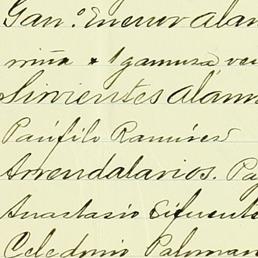 Gan.º Enero Alam
niña & 1 gamusa ve
Sirvientes Alam
Panfilo Ramirez
Arrendatarios. Pa
Anastasio Sifuent
Celedonio Paloman